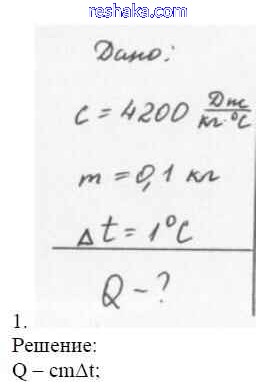 reshaka.com
Дано:
c = 4200 Дж/кг·°C
m = 0,1 кг
Δt = 1°C
Q – ?
1.
Решение:
Q – cmΔt;